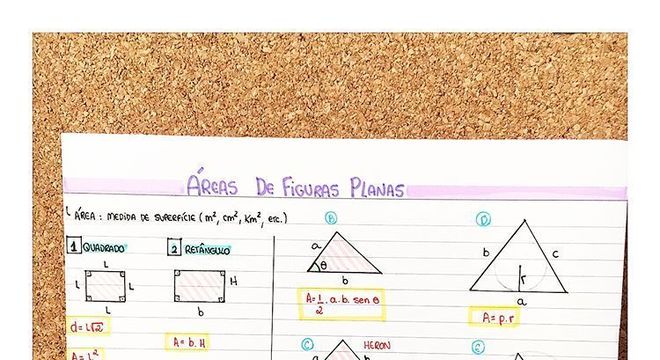 ÁREAS DE FIGURAS PLANAS
ÁREA: MEDIDA DE SUPERFÍCIE (m², cm², Km², etc.)
1 QUADRADO
L
L
L
L
d=L√2
A=L²
2 RETÂNGULO
H
b
A=b.H
B
a
θ
b
A=1/2.a.b.sen θ
C
HERON
a
b
D
b
c
r
a
A=p.r
E